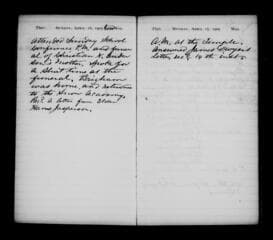 Ther. Sunday, April 16, 1905 Wea.
Attended Sunday School
conference P.M. and funer
al of Christian N. Ander
son's mother. Spoke for
a short time at the
funeral. Brigham
was home, and returned
to the Snow Academy.
Rec'd a letter from Elder
Hans Jesperson.
Ther. Monday, April 17, 1905 Wea.
A.M. at the Temple.
Answered James
letter, rec'd 14th inst.